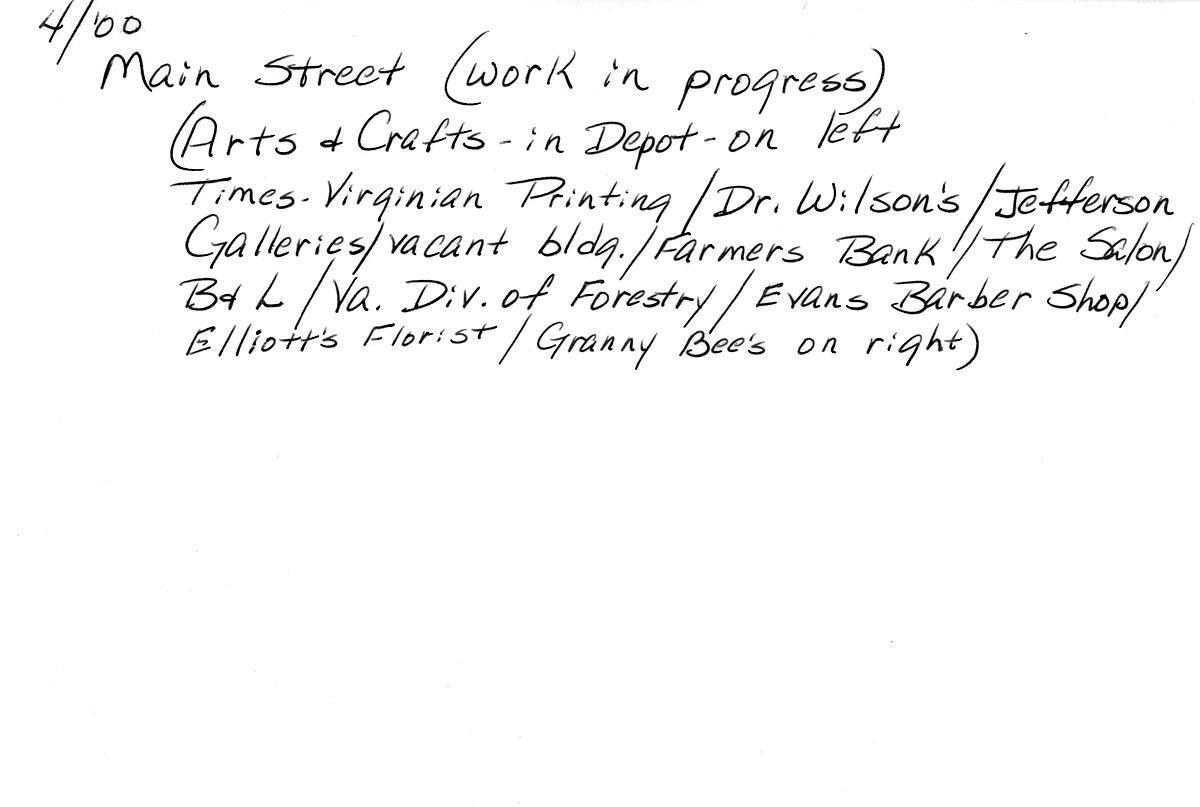 4/'00
Main Street (work in progress)
(Arts & Crafts - in Depot - on left
Times-Virginian Printing / Dr. Wilson's / Jefferson
Galleries / vacant bldg. / Farmers Bank / The Salon /
B & L / Va. Div. of Forestry / Evans Barber Shop /
Elliott's Florist / Granny Bee's on right)